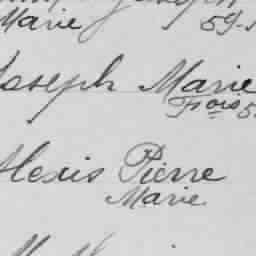 Marie 59
Joseph Marie
Fçois 5
Alexis Pierre
Marie